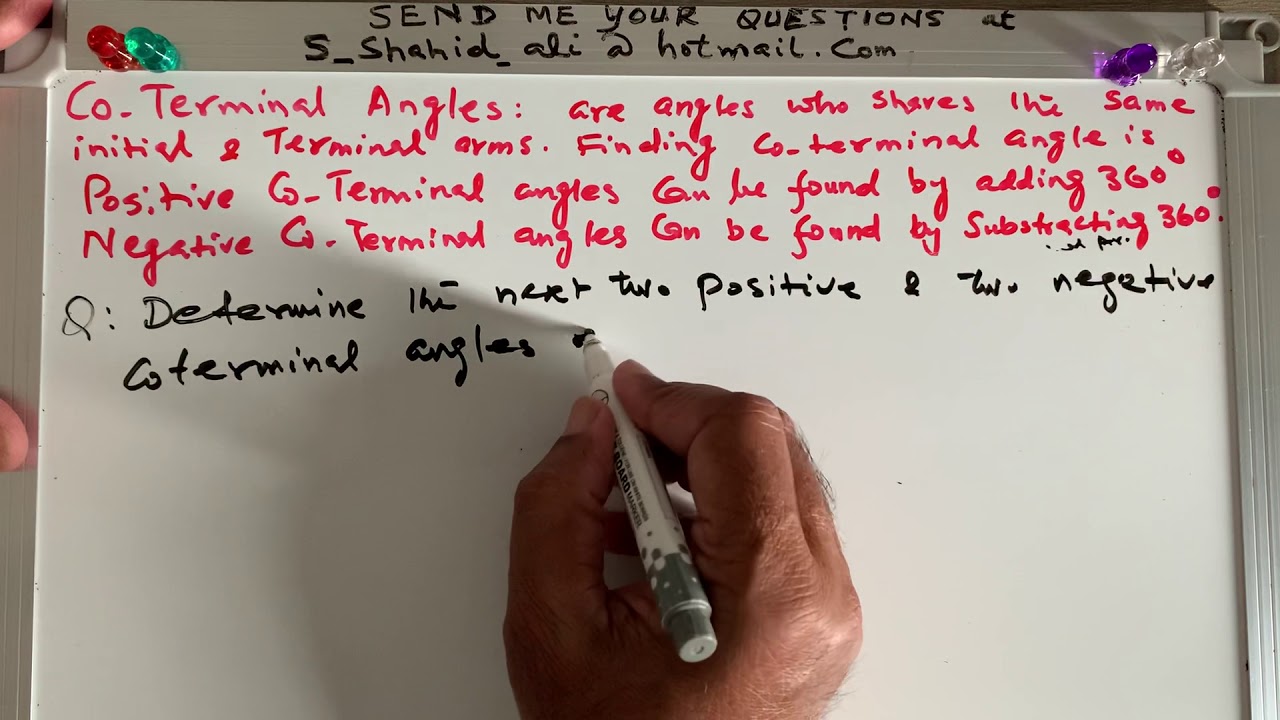 SEND ME YOUR QUESTIONS at
S_Shahid_ali@hotmail.com
Co-Terminal Angles: are angles who shares the same
initial & Terminal arms. Finding co-terminal angle is
Positive Co-Terminal angles can be found by adding 360°
Negative Co-Terminal angles can be found by Substracting 360°.
Q: Determine the next two positive & two negative
Coterminal angles
BOARD MARKER